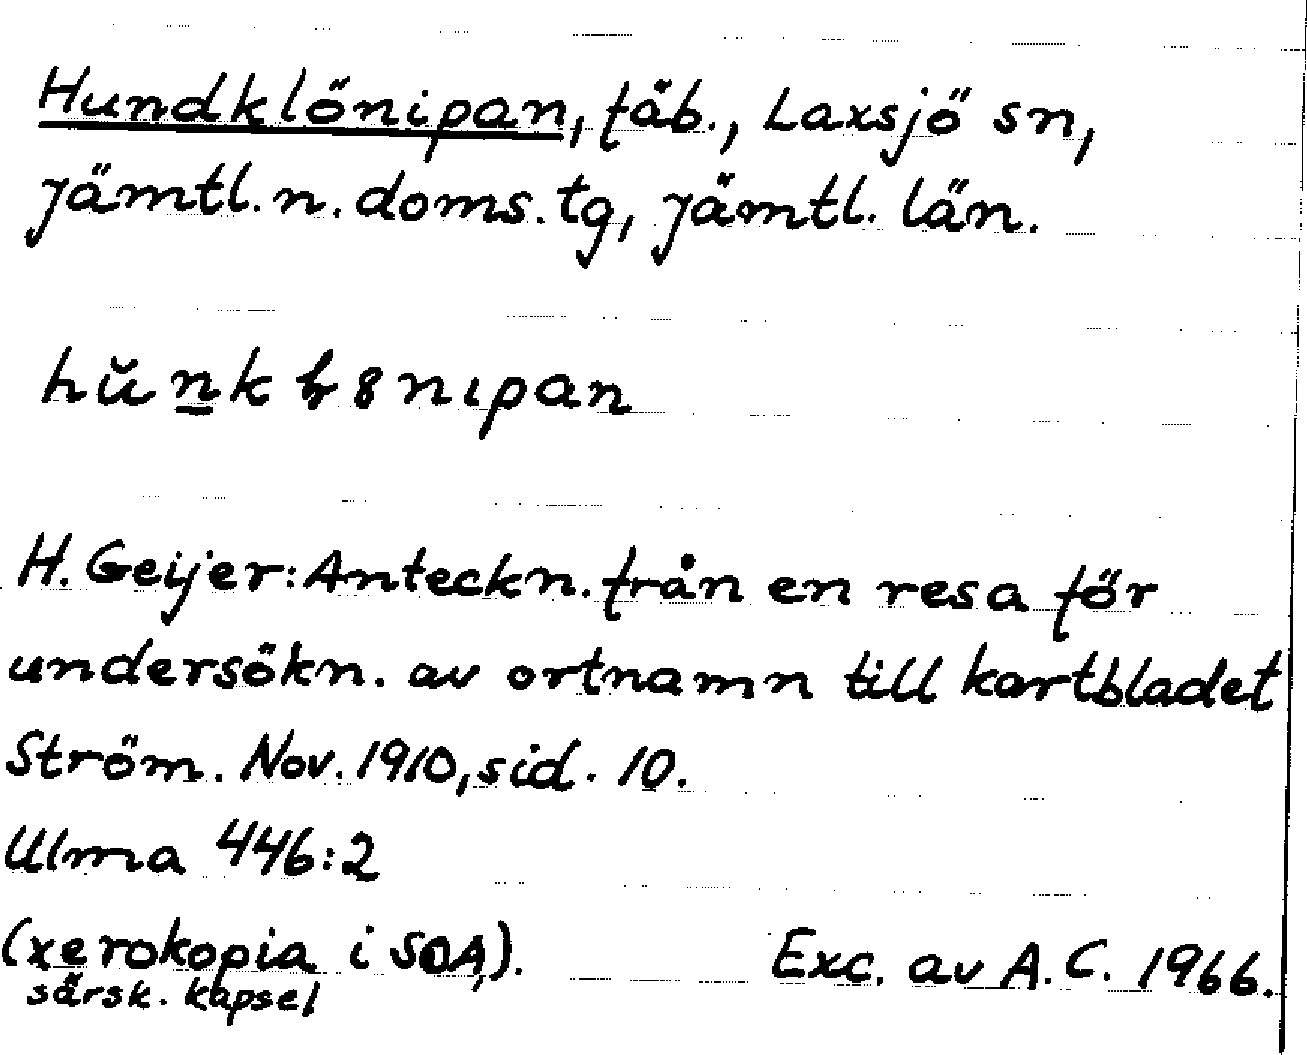 Hundklönipan, fäb., Laxsjö sn,
Jämtl. n. doms. tg, Jämtl. län.
H. Geijer: Anteckn. från en resa för
undersökn. av ortnamn till kartbladet
Ström. Nov. 1910, sid. 10.
Ulma 446:2
(xerokopia i SOA). Exc. av A. C. 1966.
särsk. kapsel